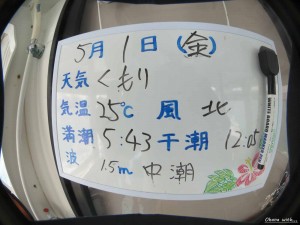 5月1日(金)
天気 くもり
気温 25℃ 風 北
満潮 5:43 干潮 12:05
波 1.5m 中潮
WHITE BOARD MARKER
Okawa with...